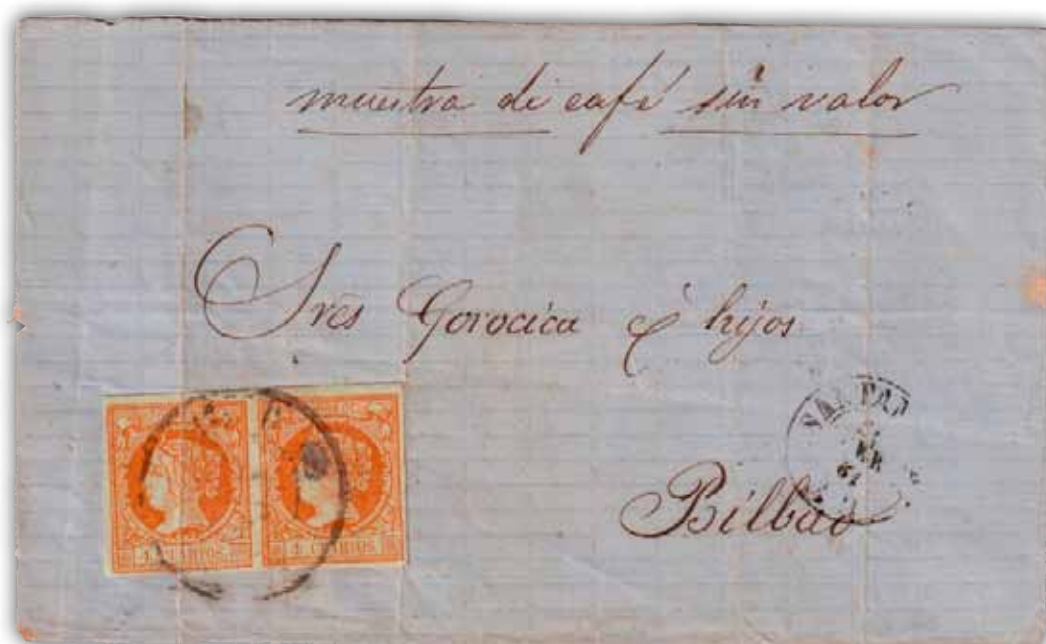 muestra de café sin valor
Sres Gorocica é hijos
Bilbao
CUARTOS CUARTOS
61